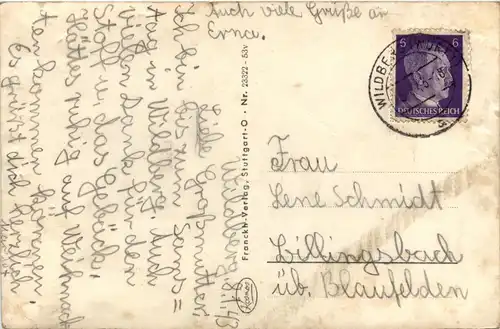 Auch viele Grüße an
Erna.
Wildberg 8.1.43
Liebe Großmutter!
Ich bin bis zum Sams=
tag in Wildberg. Auch
vielen Dank für den
Stoff u. das Gebäck.
Hätte ruhig auf Weihnach
ten kommen können.
Es grüßt dich herzlich
Franckh-Verlag, Stuttgart-O · Nr. 23322 - 53v
Kosmos
WILDBE
6 6
DEUTSCHES REICH
Frau
Lene Schmidt
Billingsbach
üb. Blaufelden